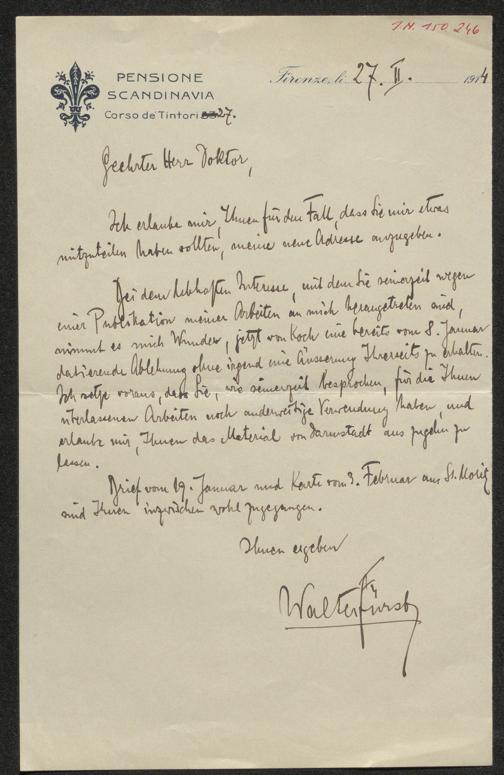 I.N. 150.246
PENSIONE
SCANDINAVIA
Corso de' Tintori 27.
Firenze, li 27. II. 1914
Geehrter Herr Doktor,
Ich erlaube mir, Ihnen für den Fall, dass Sie mir etwas
mitzuteilen haben sollten, meine neue Adresse anzugeben.
Bei dem lebhaften Interesse, mit dem Sie seinerzeit wegen
einer Publikation meiner Arbeiten an mich herangetreten sind,
nimmt es mich Wunder, jetzt von Koch eine bereits vom 8. Januar
datierende Ablehnung ohne irgend eine Äusserung Ihrerseits zu erhalten.
Ich setze voraus, dass Sie, wie seinerzeit besprochen, für die Ihnen
überlassenen Arbeiten noch anderweitige Verwendung haben, und
erlaube mir, Ihnen das Material von Darmstadt aus zugehn zu
lassen.
Brief vom 19. Januar und Karte vom 3. Februar aus St. Moritz
sind Ihnen inzwischen wohl zugegangen.
Ihnen ergeben
Walter Fürst